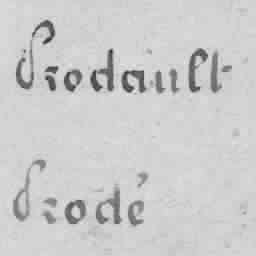 Prodault
Prodé